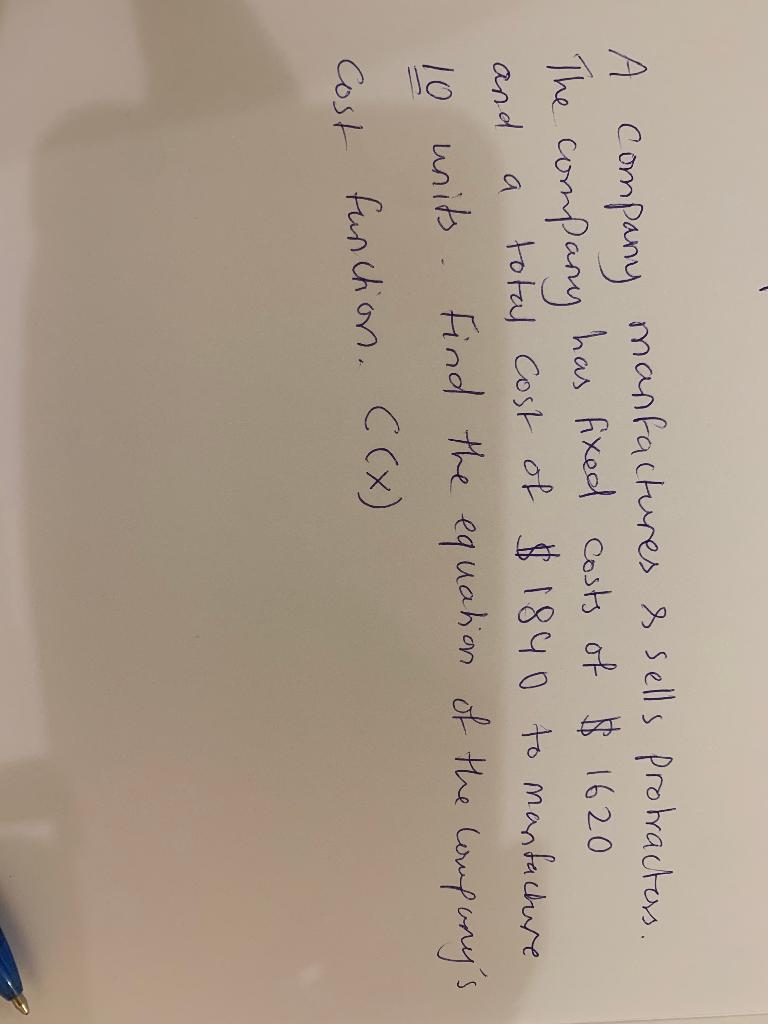 A company manfactures & sells protractors.
The company has fixed costs of $ 1620
and a total cost of $ 1840 to manfacture
10 units. Find the equation of the company's
cost function. C(x)